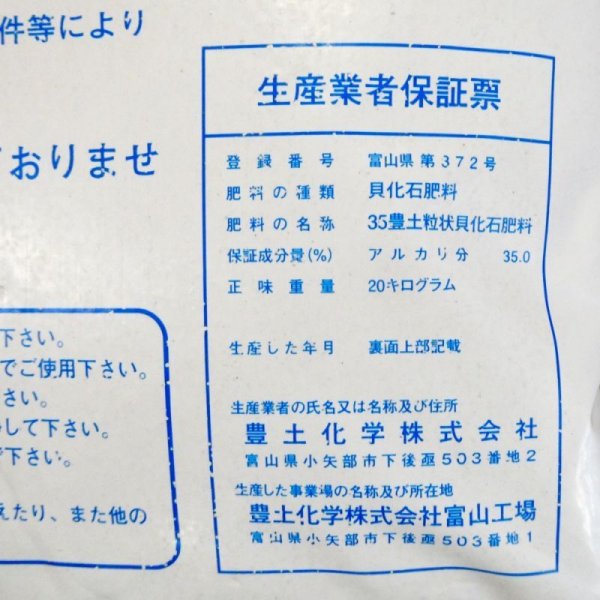 件等により
おりませ
下さい。
でご使用下さい。
さい。
して下さい。
下さい。
えたり、また他の
生産業者保証票
登録番号 富山県第372号
肥料の種類 貝化石肥料
肥料の名称 35豊土粒状貝化石肥料
保証成分量(%) アルカリ分 35.0
正味重量 20キログラム
生産した年月 裏面上部記載
生産業者の氏名又は名称及び住所
豊土化学株式会社
富山県小矢部市下後亟503番地2
生産した事業場の名称及び所在地
豊土化学株式会社富山工場
富山県小矢部市下後亟503番地1